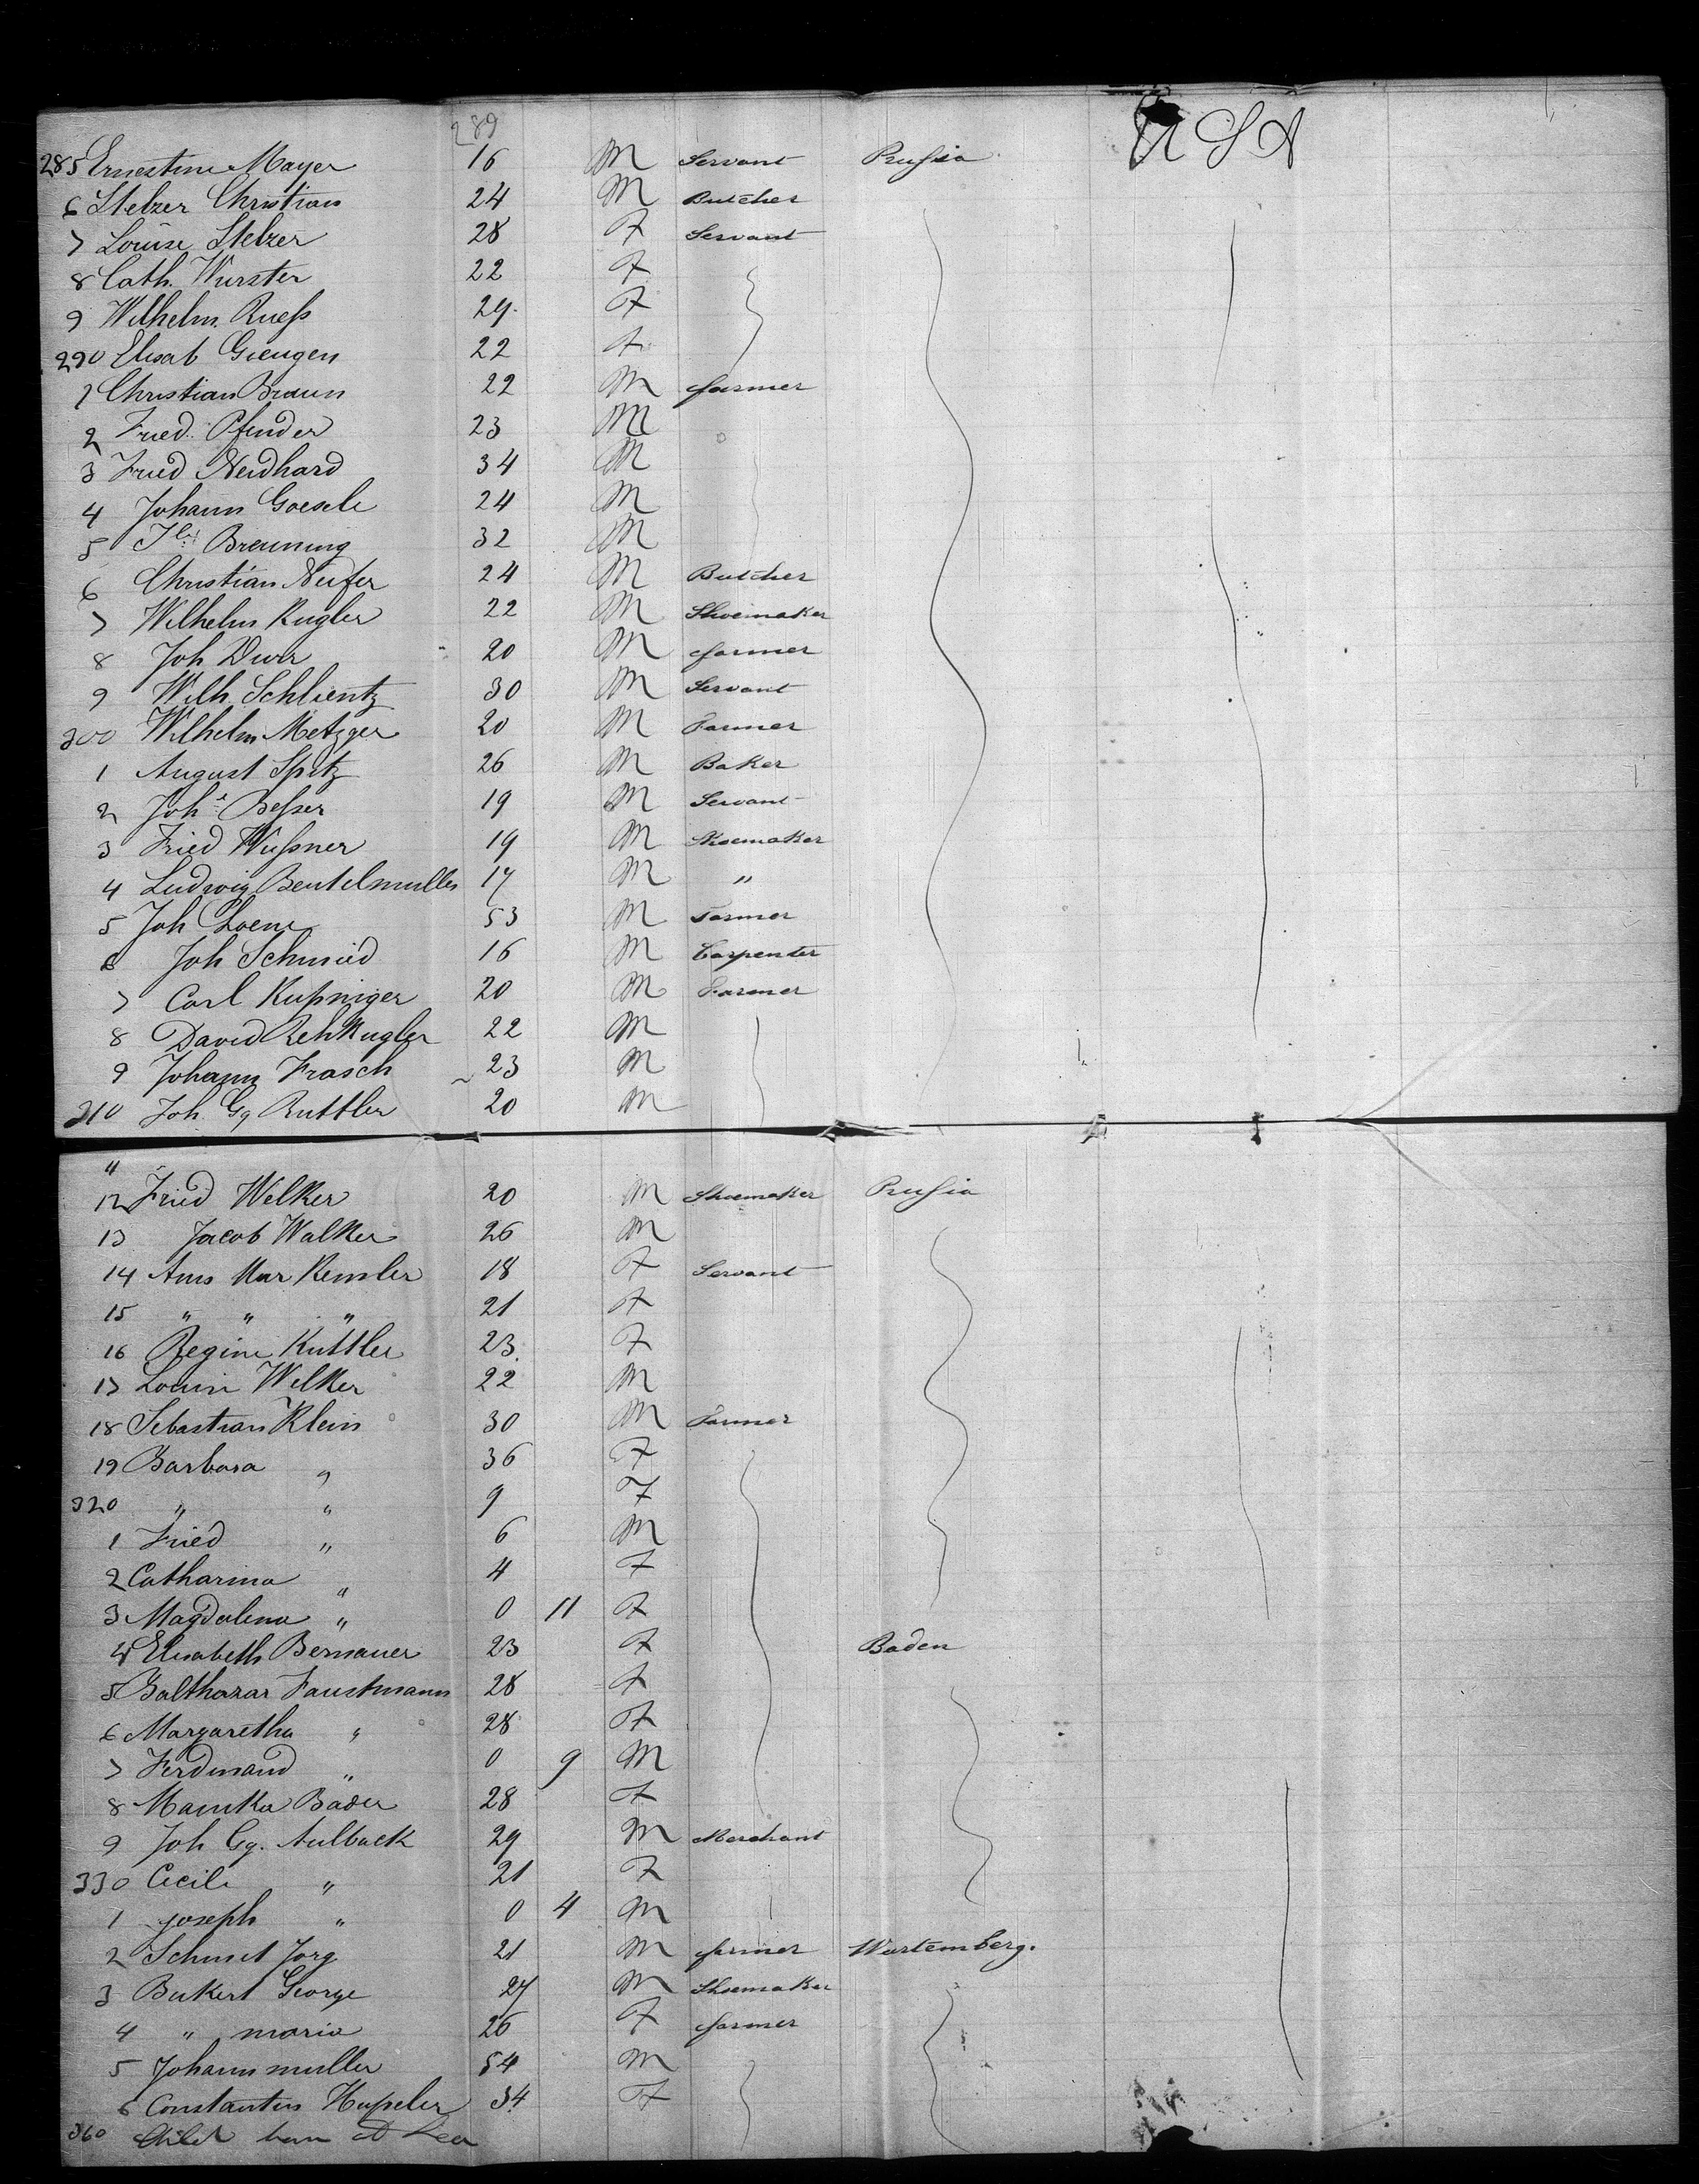 289
U S A
285 Ernestine Mayer 16 M Servant Prussia
6 Stelzer Christian 24 M Butcher
7 Louise Stelzer 28 F Servant
8 Cath. Wurster 22 F
9 Wilhelm. Ruess 29 F
290 Elisab Giengen 22 F
1 Christian Braun 22 M farmer
2 Fried. Pfender 23 M
3 Fried Neidhard 34 M
4 Johann Goesele 24 M
5 Breuning 32 M
6 Christian Neifer 24 M Butcher
7 Wilhelm Kugler 22 M Shoemaker
8 Joh 20 M farmer
9 Wilh Schlientz 30 M Servant
300 Wilhelm Metzger 20 M Farmer
1 August Spitz 26 M Baker
2 Joh Besser 19 M Servant
3 Fried Wussner 19 M Shoemaker
4 Ludwig Beutelmuller 17 M "
5 Joh 53 M Farmer
6 Joh Schmied 16 M Carpenter
7 Carl Kussniger 20 M Farmer
8 David RehKugler 22 M
9 Johann Frasch 23 M
310 Joh. Gg Ruttler 20 M
11
12 Fried Welker 20 M Shoemaker Prussia
13 Jacob Walker 26 M
14 Mar Kemler 18 F Servant
15 " " " 21 F
16 Regine Kuttler 23 F
17 Louise Welker 22 M
18 Sebastian Klein 30 M Farmer
19 Barbara " 36 F
320 " " 9 F
1 Fried " 6 M
2 Catharina " 4 F
3 Magdalena " 0 11 F
4 Elisabeth Bernauer 23 F Baden
5 Balthazar Faustmann 28 F
6 Margaretha " 28 F
7 Ferdinand " 0 9 M
8 Bader 28 F
9 Joh Gg. Aulback 29 M Merchant
330 Cecile " 21 F
1 Joseph " 0 4 M
2 Jorg 21 M farmer Wurtemberg.
3 Bukert George 27 M Shoemaker
4 " maria 26 F farmer
5 Johann muller 54 M
6 Constantin 34 F
360 Child born at Sea